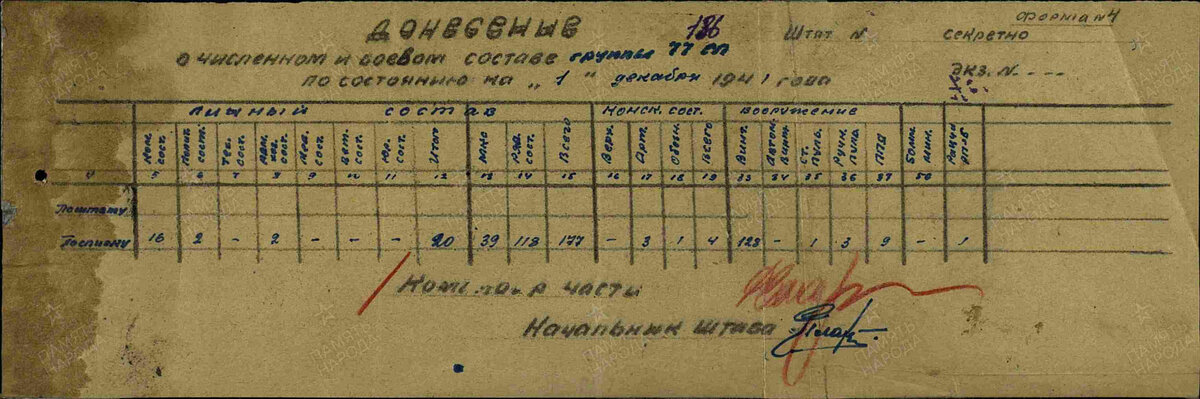 Форма №4
ДОНЕСЕНИЕ 186 Штат № секретно
о численном и боевом составе группы 77 сп
по состоянию на "1" декабря 1941 года Экз. №
личный состав Конск. сост. вооружение
Ком. сост. Полит. сост. Тех. сост. Адм. хоз. сост. Мед. сост. Вет. сост. Юр. сост. Итого МНС Ряд. сост. Всего Верх. Арт. Обозн. Всего Винт. Автом. винт. Ст. пуль. Ручн. пул. ППД Бат. мин. Рации
5 6 7 8 9 10 11 12 13 14 15 16 17 18 19 33 34 35 36 37 50
По штату
По списку 16 2 - 2 - - - 20 39 118 177 - 3 1 4 123 - 1 3 9 - 1
Командир части
Начальник штаба